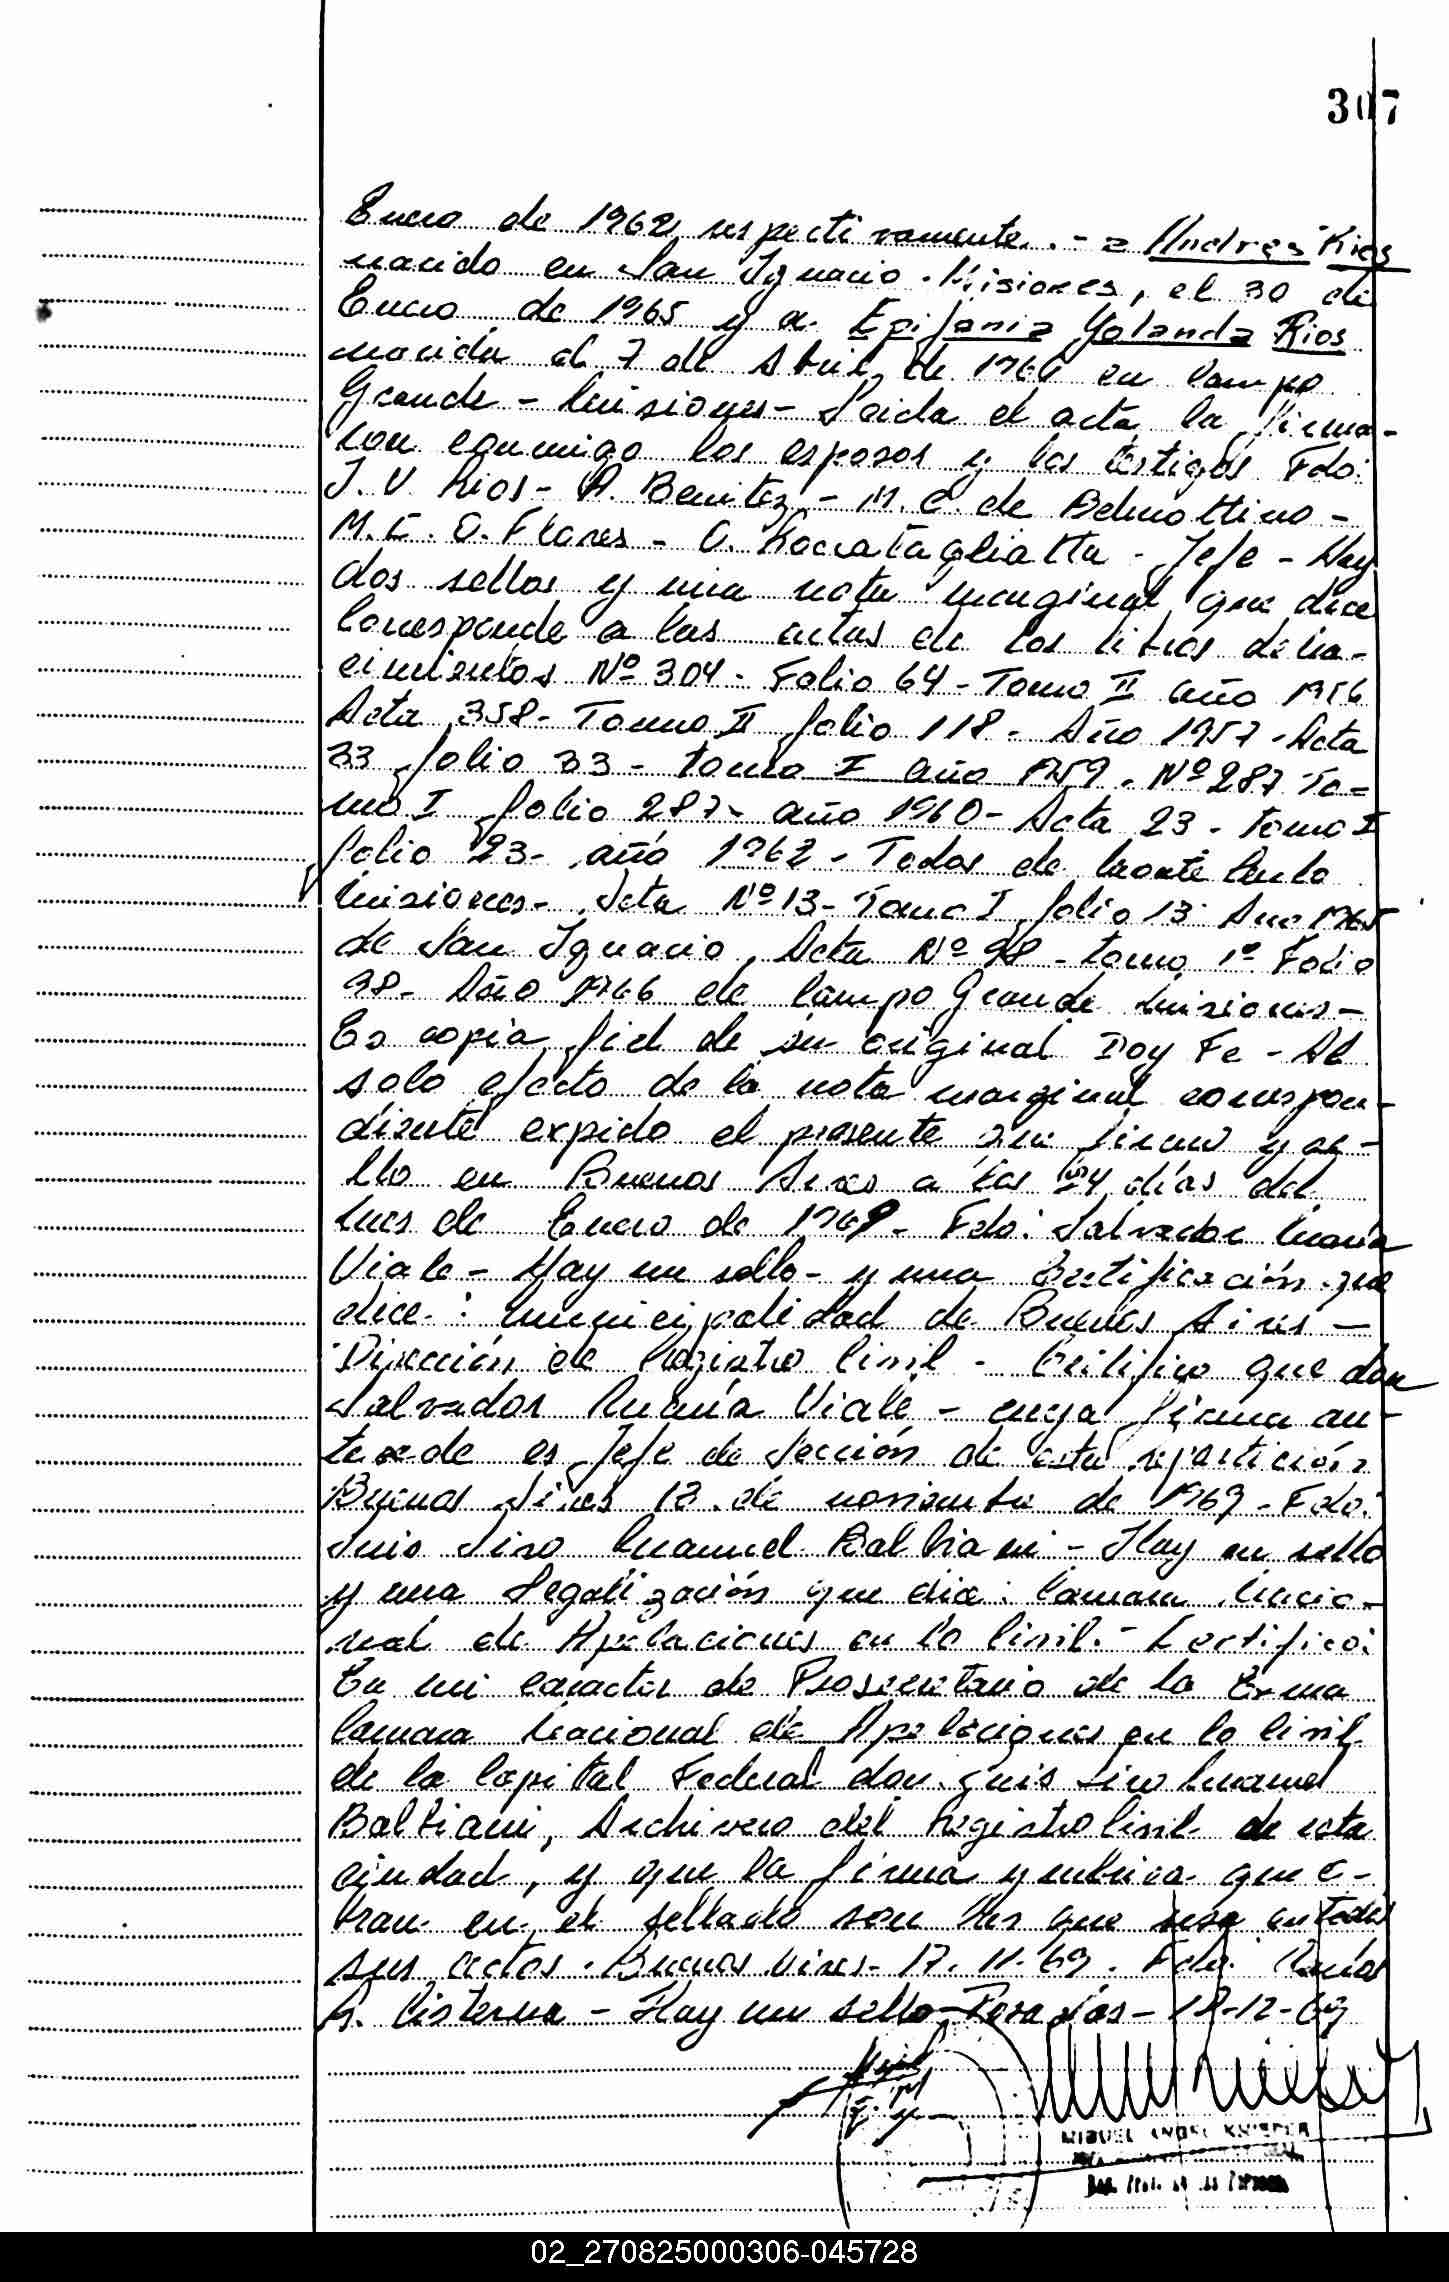 307
Enero de 1962 respectivamente. - a Andres Rios
nacido en San Ignacio - Misiones, el 30 de
Enero de 1965 y a Epifania Yolanda Rios
nacida el 7 de Abril de 1966 en Campo
Grande - Misiones - Leida el acta la firma-
ron conmigo los esposos y los testigos Fdo:
J. V. Rios - A. Benitez - M. C. de
M. E. O. Flores - O. Roccatagliatta - Jefe - Hay
dos sellos y una nota marginal que dice
Corresponde a las actas de los libros de na-
cimientos Nº 304 - Folio 64 - Tomo II año 1956
Acta 358 - Tomo II folio 118 - Año 1957 - Acta
33 folio 33 - tomo I año 1959 - Nº 287 To-
mo I folio 287 - año 1960 - Acta 23 - tomo I
folio 23 - año 1962 - Todas de Monte Carlo
Misiones - Acta Nº 13 - Tomo I folio 13 Año 1965
de San Ignacio Acta Nº 98 - tomo 1º Folio
98 - Año 1966 de Campo Grande Misiones -
Es copia fiel de su original Doy Fe - Al
solo efecto de la nota marginal correspon-
diente expido el presente que firmo y se-
llo en Buenos Aires a los días del
mes de Enero de 1969 - Fdo: Salvador María
Viale - Hay un sello - y una Certificación que
dice: Municipalidad de Buenos Aires -
Dirección de Registro Civil - Certifico que don
Salvador María Viale - cuya firma an-
tecede es Jefe de Sección de esta repartición
Buenos Aires 13 de noviembre de 1969 - Fdo:
Luis Siro Manuel Balbiani - Hay un sello
y una Legalización que dice: Camara Nacio-
nal de Apelaciones en lo Civil. - Certifico:
En mi caracter de Prosecretario de la Exma
Camara Nacional de Apelaciones en lo Civil
de la Capital Federal don Luis Siro Manuel
Balbiani, Archivero del Registro Civil de esta
ciudad, y que la firma y rubrica que o-
bran en el sellado son las que usa en todos
sus actos. Buenos Aires - 17.11.69. Fdo: María
R. Cisterna - Hay un sello - Posadas - 18-12-69
MIGUEL ANGEL
02_270825000306-045728